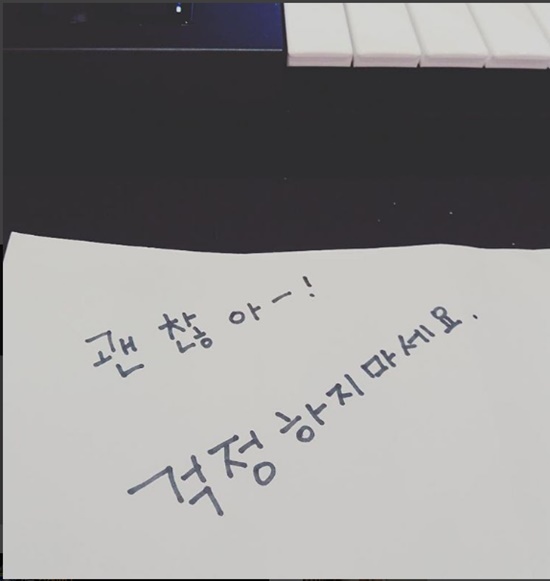 괜찮아ㅡ!
걱정하지마세요.